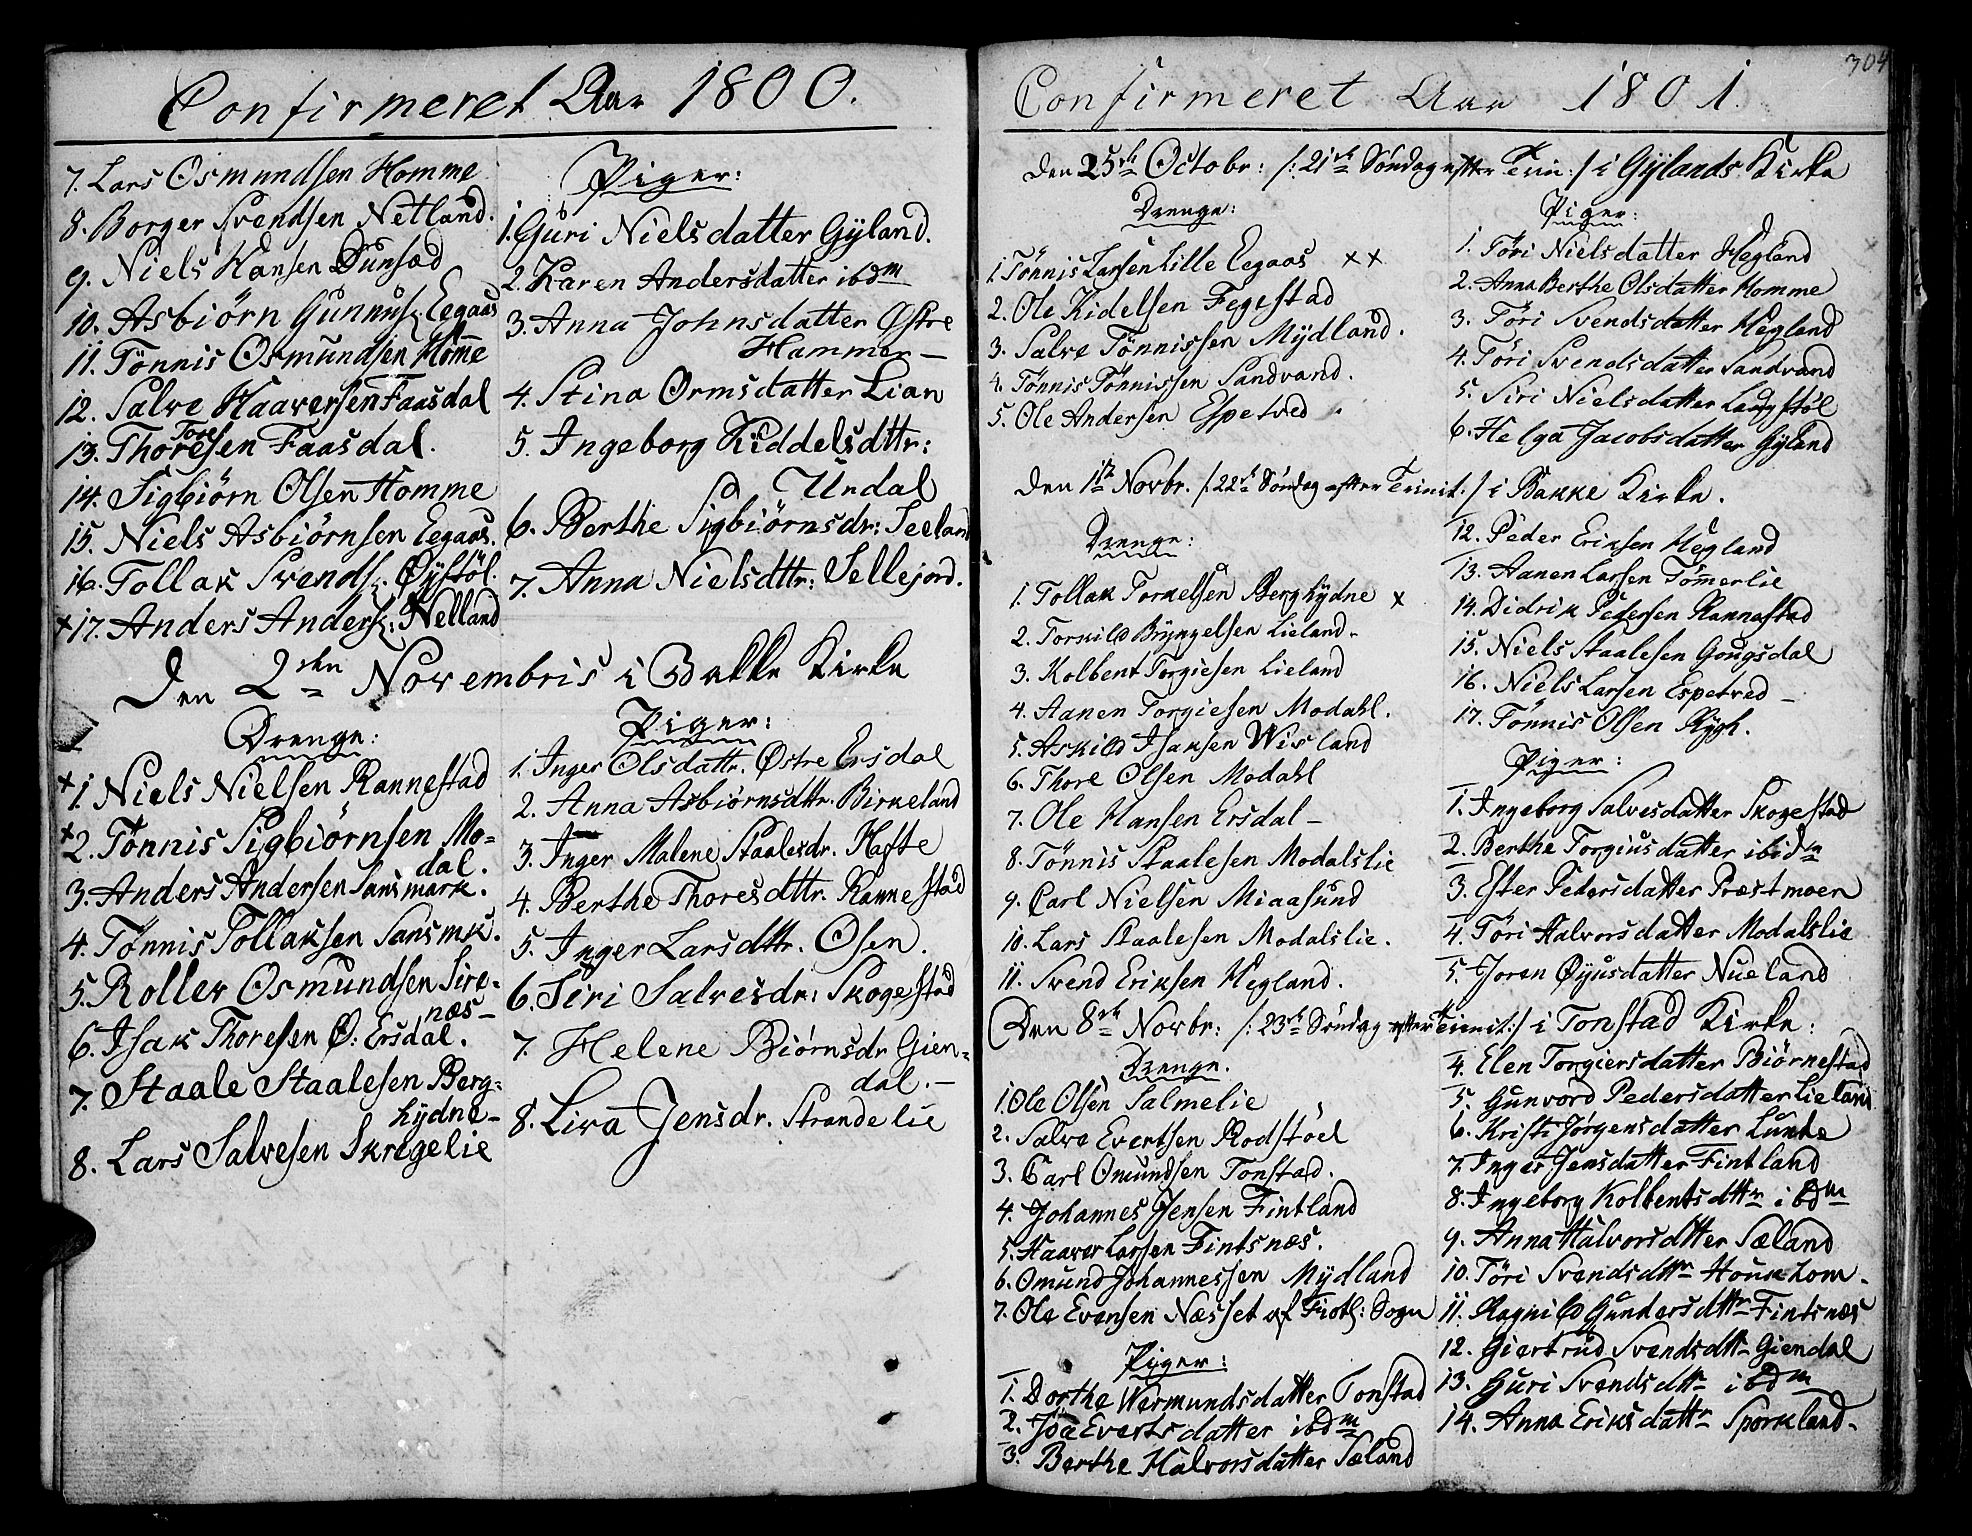 Confirmeret Aar 1800.
7. Lars Osmundsen Homme
8. Borger Svendsen Netland.
9. Niels Hansen Dunsæd
10. Asbiörn Gunnufs: Eegaas
11. Tönnis Osmundsen Hom̄e
12. Salve Haaversen Faasdal
Tore
13. Thoresen Faasdal.
14. Sigbiörn Olsen Homme
15. Niels Asbiörnsen Eegaas.
16. Tollak Svends: Øystöl.
x17. Anders Anders: Netland
Piger:
1. Guri Nielsdatter Gÿland.
2. Karen Andersdatter ibdm
3. Anna Johnsdatter Østre
Hammer—
4. Stina Ormsdatter Lian
5. Ingeborg Kiddelsdttr:
Undal
6. Berthe Sigbiörnsdr: Seeland
7. Anna Nielsdttr: Sellejord.
Den 2den Novembris i Bakke Kirke
Drenge:
x1. Niels Nielsen Rannestad
x2. Tönnis Sigbiörnsen Mo=
dal.
3. Anders Andersen Sansmark.
4. Tönnis Tollaksen Sansmk.
5. Roller Osmundsen Sire=
næs—
6. Isak Thoresen Ø. Ersdal.
7. Staale Staalesen Berg=
hydne—
8. Lars Salvesen Skregelie
Piger:
1. Inger Olsdattr. Østre Ersdal
2. Anna Asbiörnsdttr. Birkeland
3. Inger Malene Staalesdr. Hafte
4. Berthe Thoresdttr. Rannestad
5. Inger Larsdttr. Osen.
6. Siri Salvesdr: Skogestad
7. Helene Biörnsdr Gien=
dal.—
8. Liva Jensdr. Strandelie
304
Confirmeret Aar 1801.
Den 25de Octobr: /: 21de Söndag efter Trin: / i Gÿlands Kirke
Drenge:
1. Tönnis Larsen Lille Eegaas xx
2. Ole Kidelsen Fegestad
3. Salve Tönnissen Mÿdland.
4. Tönnis Tönnissen Sandvand.
5. Ole Andersen Espetved.
Piger:
1. Töri Nielsdatter Hegland
2. Anna Berthe Olsdatter Homme
3. Töri Svendsdatter Hegland
4. Töri Svendsdatter Sandvand
5. Siri Nielsdatter Langstöl
6. Helga Jacobsdatter Gÿland
Den 1te Novbr. /: 22de Söndag efter Trinit: / i Bakke Kirke.
Drenge:
1. Tollak Torkelsen Berghydne x
2. Torkild Brÿngelsen Lieland.
3. Kolbent Torgiesen Lieland
4. Aanen Torgiesen Modahl.
5. Askild Isaksen Wisland
6. Thore Olsen Modahl
7. Ole Hansen Ersdal—
8. Tönnis Staalesen Modalslie
9. Carl Nielsen Miaasund
10. Lars Staalesen Modalslie.
11. Svend Eriksen Hegland.
12. Peder Eriksen Hegland
13. Aanen Larsen Tömerlie
14. Didrik Pedersen Rannestad
15. Niels Staalesen Gougsdal
16. Niels Larsen Espetved—
17. Tönnis Olsen Rygh.
Piger:
1. Ingeborg Salvesdatter Skogestad
2. Berthe Torgiusdatter ibidm
3. Ester Pedersdatter Præstmoen
4. Töri Halvorsdatter Modalslie
5. Joren Øyusdatter Nueland
Den 8de Novbr: /: 23de Söndag efter Trinit: / i Tonstad Kirke:
Drenge.
1. Ole Olsen Salmelie
2. Salve Evertsen Rodstöel
3. Carl Omundsen Tonstad.
4. Johannes Jensen Fintland
5. Haaver Larsen Fintsnæs.
6. Omund Johannessen Mÿdland
7. Ole Evensen Næsset af Fiotl: Sogn
Piger:
1. Dorthe Wermundsdatter Tonstad
2. Joa Evertsdatter ibdm
3. Berthe Halvorsdatter Sæland
4. Elen Torgiersdatter Biörnestad
5. Gunvord Pedersdatter Lieland
6. Kristi Jörgensdatter Lunde
7. Inger Jensdatter Fintland
8. Ingeborg Kolbentsdttr ibdm
9. Anna Halvorsdtter Sæland
10. Töri Svendsdttr Houkhom.
11. Ragnild Gundersdttr Fintsnæs
12. Giertrud Svendsdttr Giendal
13. Guri Svendsdttr ibdm
14. Anna Eriksdattr Sporkland.